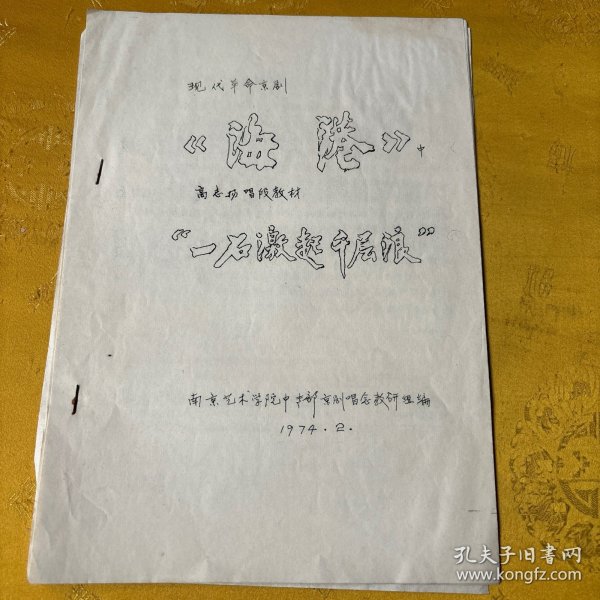 现代革命京剧
《海港》中
高志扬唱段教材
“一石激起千层浪”
南京艺术学院中专部京剧唱念教研组编
1974.2.
孔夫子旧书网
www.kongfz.com